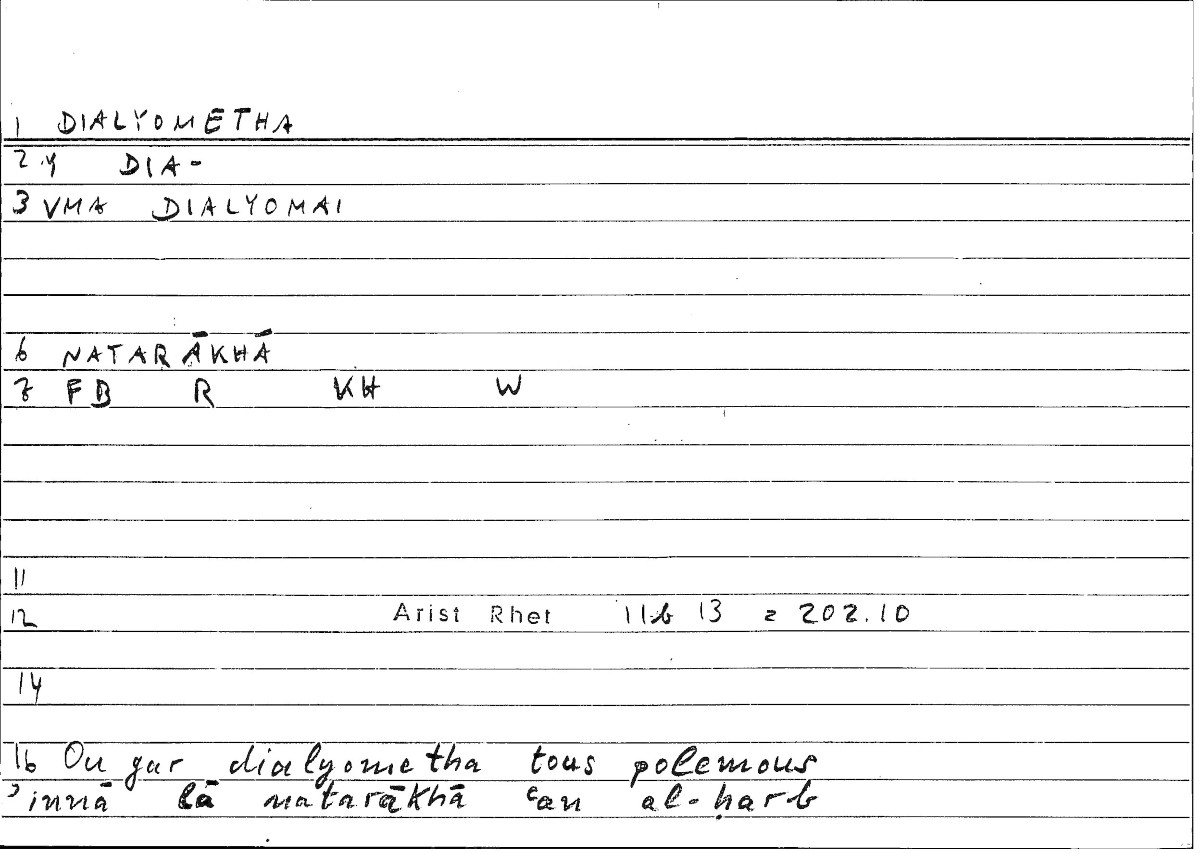 1 DIALYOMETHA
2 y DIA-
3 VMA DIALYOMAI
6 NATARĀKHĀ
7 FB R KH W
11
12 Arist Rhet 11b 13 = 202.10
14
16 Ou gar dialyometha tous polemous
ʾinnā lā natarākhā ʿan al-ḥarb